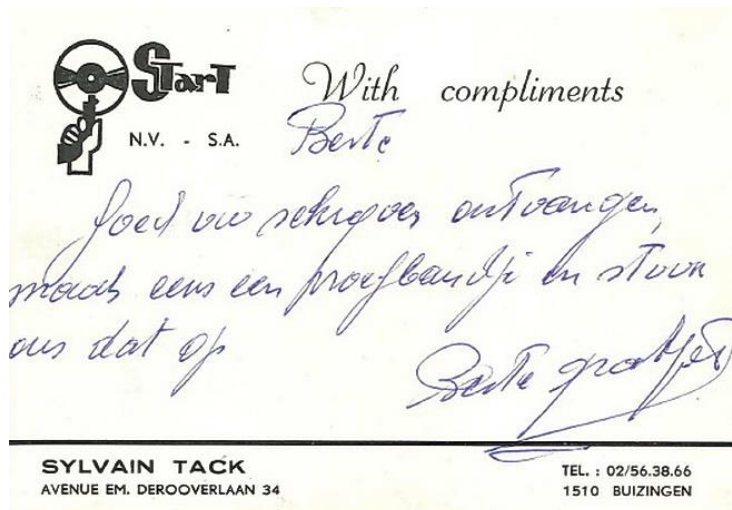 START
N.V. - S.A.
With compliments
Beste
Goed uw schrijven ontvangen,
maak eens een proefbandje en stuur
ons dat op
Beste groetjes
SYLVAIN TACK
AVENUE EM. DEROOVERLAAN 34
TEL. : 02/56.38.66
1510 BUIZINGEN